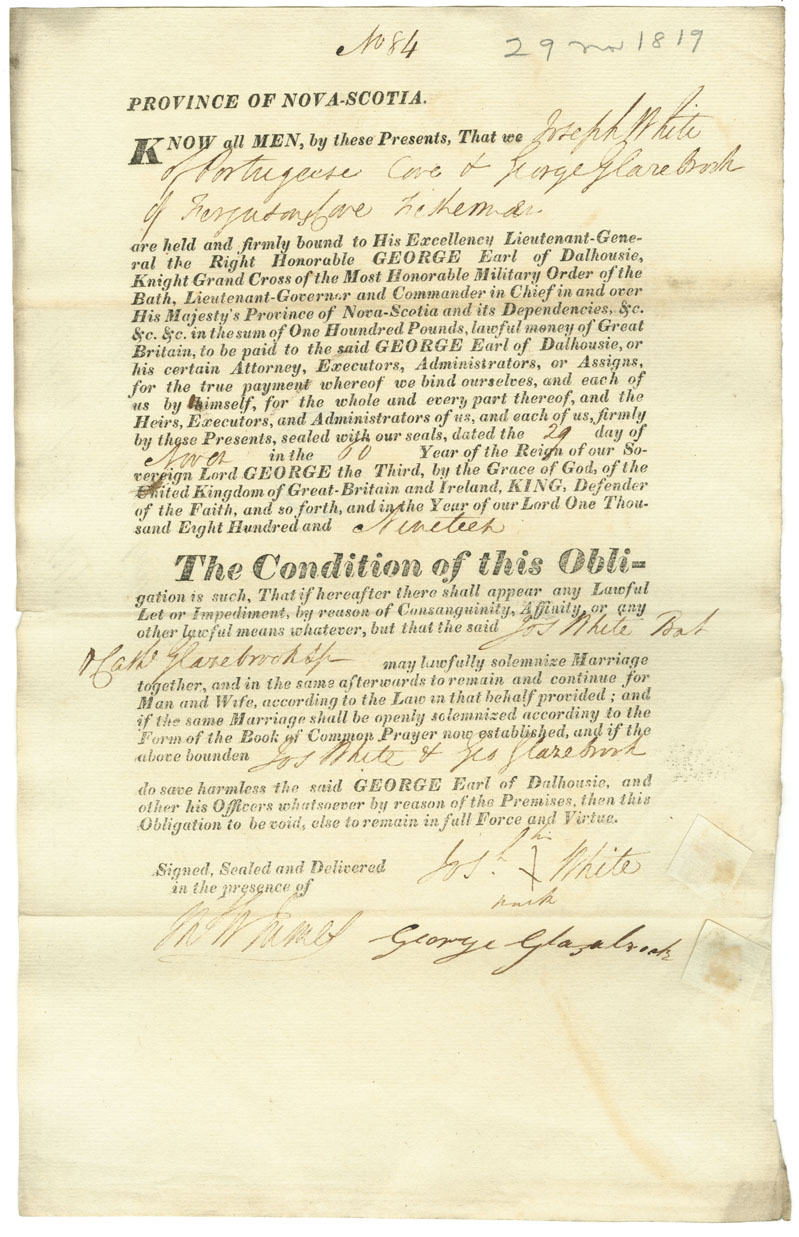 No 84
29 Nov 1819
PROVINCE OF NOVA-SCOTIA.
KNOW all MEN, by these Presents, That we Joseph White
of Portuguese Cove & George Glazebrook
of Fergusons Cove Fishermen
are held and firmly bound to His Excellency Lieutenant-Gene-
ral the Right Honorable GEORGE Earl of Dalhousie,
Knight Grand Cross of the Most Honorable Military Order of the
Bath, Lieutenant-Governor and Commander in Chief in and over
His Majesty's Province of Nova-Scotia and its Dependencies, &c.
&c. &c. in the sum of One Houndred Pounds, lawful money of Great
Britain, to be paid to the said GEORGE Earl of Dalhousie, or
his certain Attorney, Executors, Administrators, or Assigns,
for the true payment whereof we bind ourselves, and each of
us by himself, for the whole and every part thereof, and the
Heirs, Executors, and Administrators of us, and each of us, firmly
by these Presents, sealed with our seals, dated the 29 day of
Novr in the 60 Year of the Reign of our So-
vereign Lord GEORGE the Third, by the Grace of God, of the
United Kingdom of Great-Britain and Ireland, KING, Defender
of the Faith, and so forth, and in the Year of our Lord One Thou-
sand Eight Hundred and Nineteen
The Condition of this Obli-
gation is such, That if hereafter there shall appear any Lawful
Let or Impediment, by reason of Consanguinity, Affinity, or any
other lawful means whatever, but that the said Jos White Bat
& Cath Glazebrook Sp may lawfully solemnize Marriage
together, and in the same afterwards to remain and continue for
Man and Wife, according to the Law in that behalf provided; and
if the same Marriage shall be openly solemnized accordiny to the
Form of the Book of Common Prayer now established, and if the
above bounden Jos White & Geo Glazebrook
do save harmless the said GEORGE Earl of Dalhousie, and
other his Officers whatsoever by reason of the Premises, then this
Obligation to be void, else to remain in full Force and Virtue.
Signed, Sealed and Delivered
in the presence of
his
Josh X White
mark
George Glazebrook